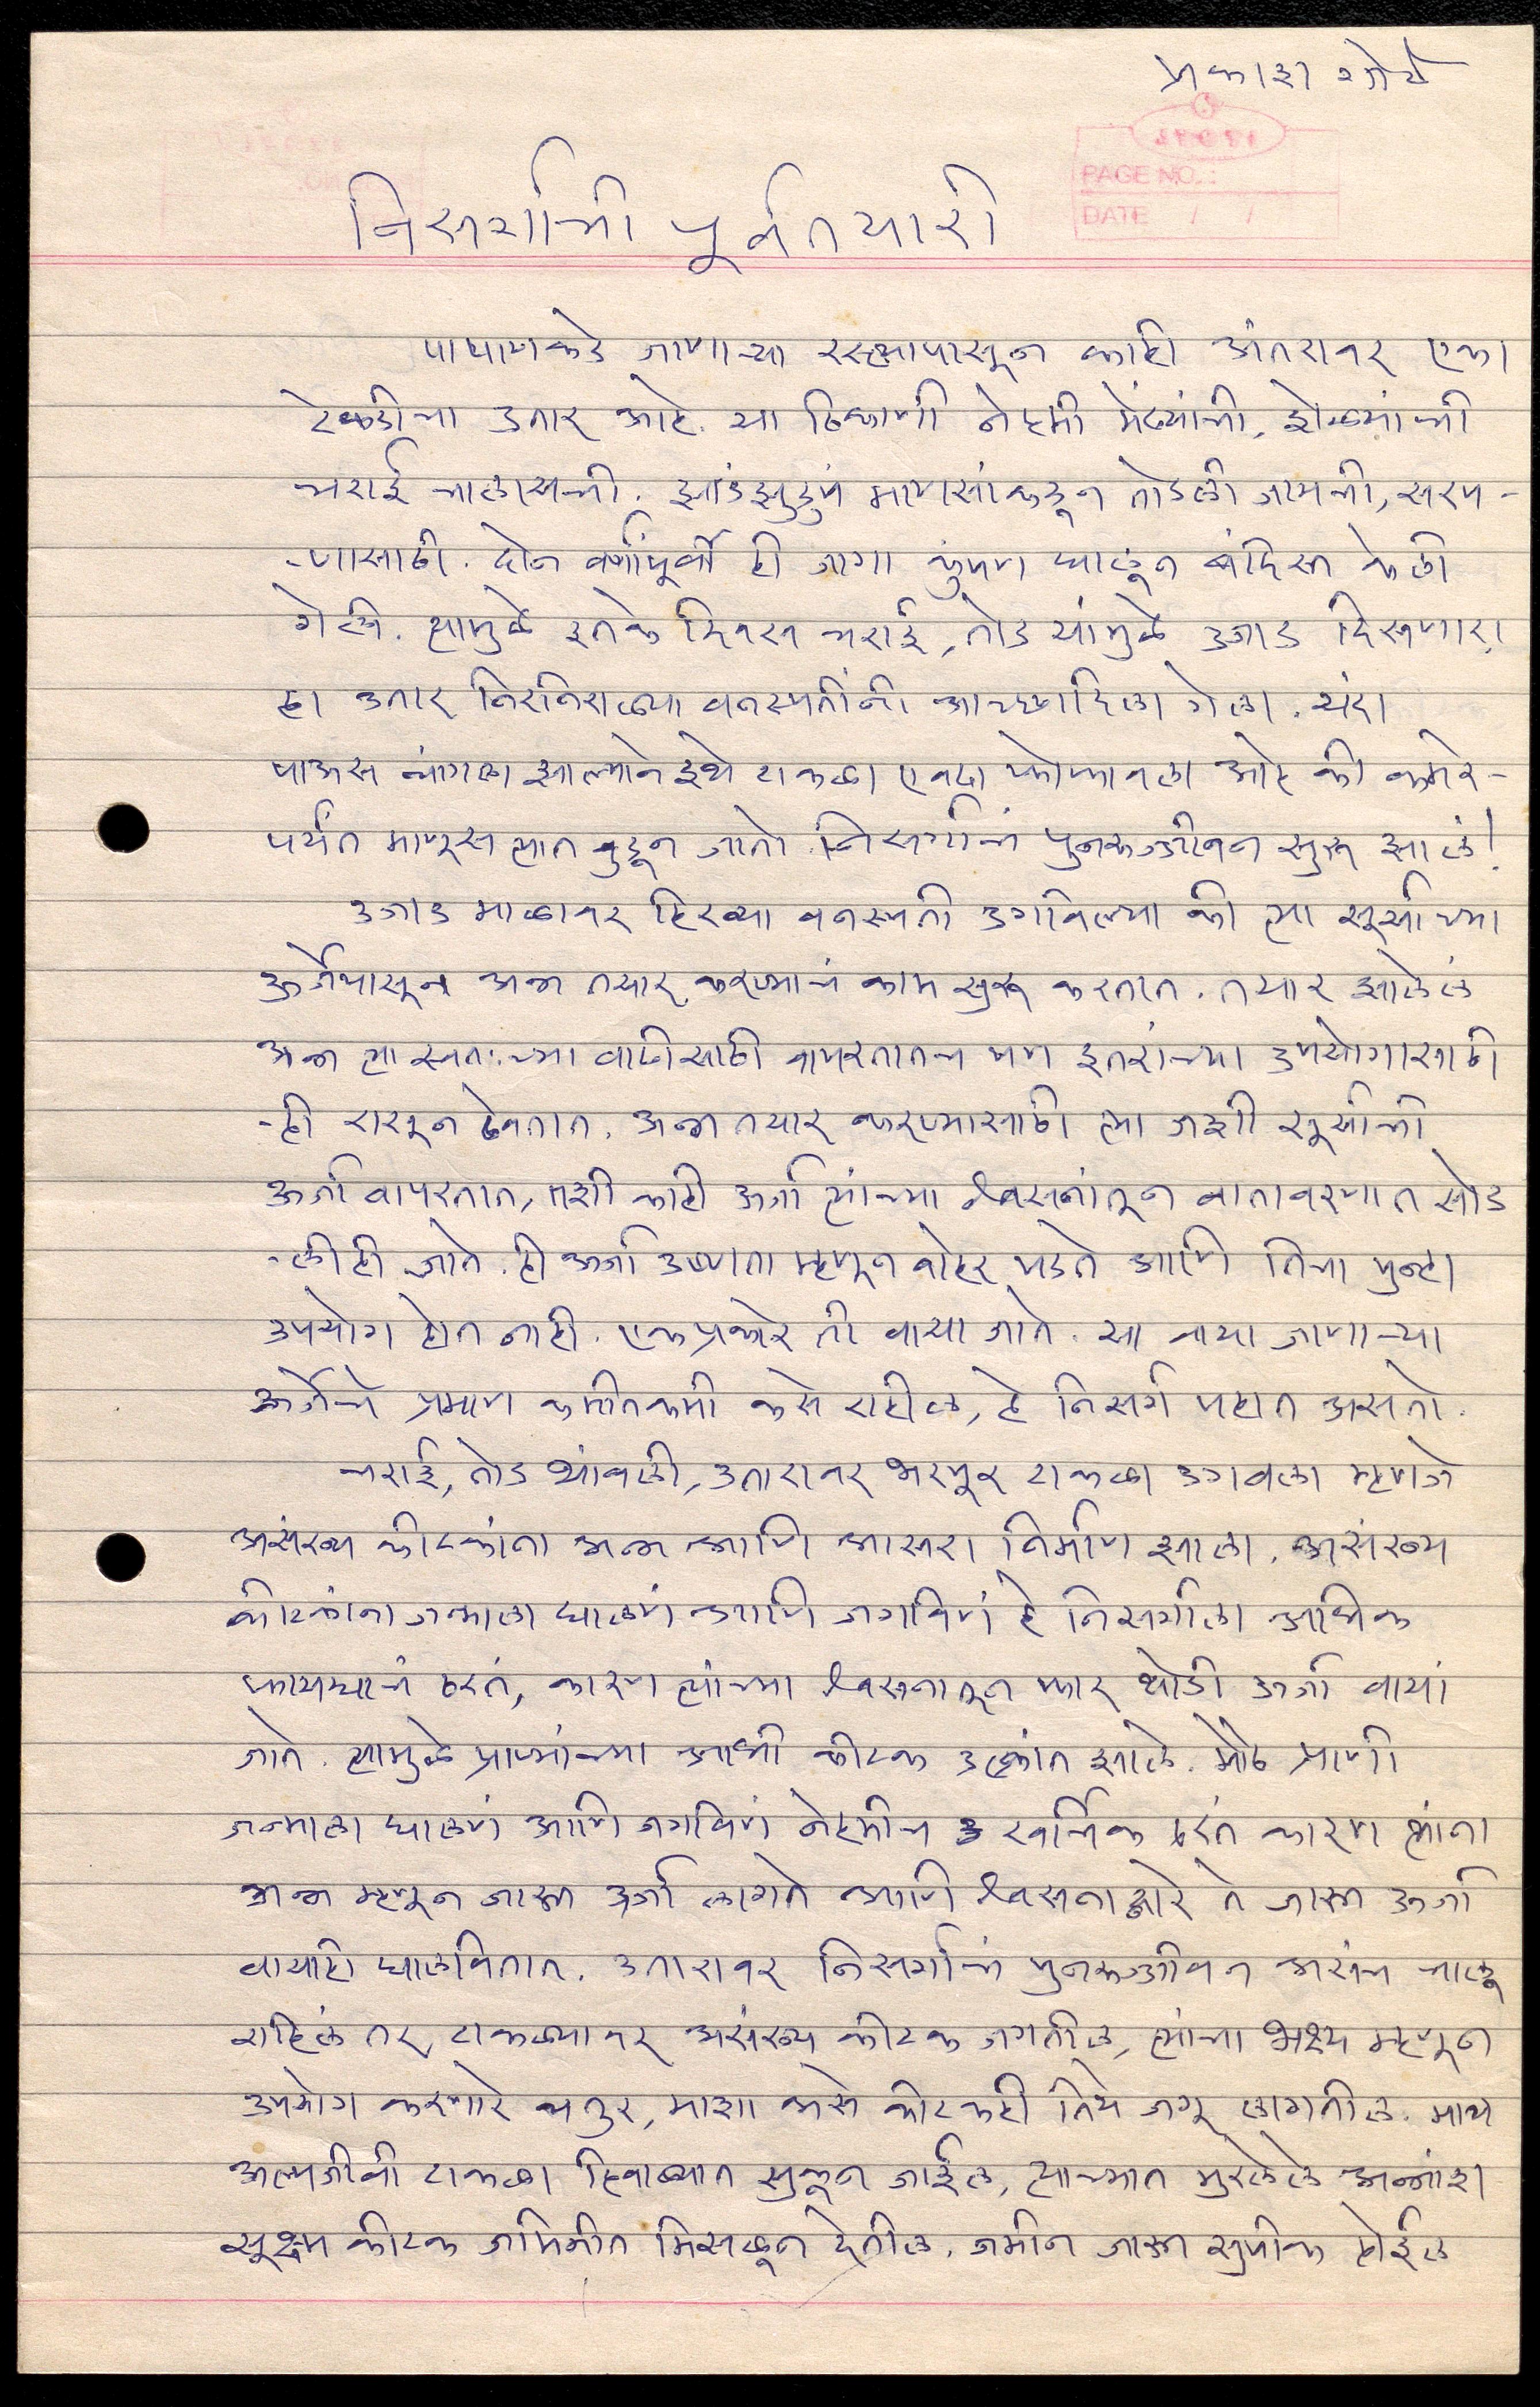 प्रकाश गोटे
PAGE NO.:
DATE / /
निसर्गाची पूर्वतयारी
पाषाणकडे जाणाऱ्या रस्त्यापासून काही अंतरावर एका
टेकडीचा उतार आहे. या ठिकाणी नेहमी मेंढ्यांची, शेळ्यांची
चराई चालायची. झाडंझुडुपं माणसांकडून तोडली जायची, सरप-
-णासाठी. दोन वर्षांपूर्वी ही जागा कुंपण घालून बंदिस्त केली
गेली. त्यामुळे इतके दिवस चराई, तोड यांमुळे उजाड दिसणारा
हा उतार निरनिराळ्या वनस्पतींनी आच्छादिला गेला. यंदा
पाऊस चांगला झाल्याने इथे टाकळा एवढा फोफावला आहे की कमरे-
पर्यंत माणूस त्यात बुडून जातो. निसर्गाचं पुनरुज्जीवन सुरू झालं!
उजाड माळावर हिरव्या वनस्पती उगविल्या की त्या सूर्याच्या
ऊर्जेपासून अन्न तयार करण्याचं काम सुरू करतात. तयार झालेलं
अन्न त्या स्वतःच्या वाढीसाठी वापरतातच पण इतरांच्या उपयोगासाठी
-ही राखून ठेवतात. अन्न तयार करण्यासाठी त्या जशी सूर्याची
ऊर्जा वापरतात, तशी काही ऊर्जा त्यांच्या श्वसनांतून वातावरणात सोड
-लीही जाते. ही ऊर्जा उष्णता म्हणून बाहेर पडते आणि तिचा पुन्हा
उपयोग होत नाही. एकप्रकारे ती वाया जाते. या वाया जाणाऱ्या
ऊर्जेचे प्रमाण कमीतकमी कसे राहील, हे निसर्ग पहात असतो.
चराई, तोड थांबली, उतारावर भरपूर टाकळा उगवला म्हणजे
असंख्य कीटकांना अन्न आणि आसरा निर्माण झाला. असंख्य
कीटकांना जन्माला घालणं आणि जगविणं हे निसर्गाला अधिक
फायद्याचं ठरतं, कारण त्यांच्या श्वसनातून फार थोडी ऊर्जा वाया
जाते. त्यामुळे प्राण्यांच्या आधी कीटक उत्क्रांत झाले. मोठे प्राणी
जन्माला घालणं आणि जगविणं नेहमीच खर्चिक ठरतं कारण त्यांना
अन्न म्हणून जास्त ऊर्जा लागते आणि श्वसनाद्वारे ते जास्त ऊर्जा
वायाही घालवितात. उतारावर निसर्गाचं पुनरुज्जीवन असंच चालू
राहिलं तर, टाकळ्यावर असंख्य कीटक जगतील, त्यांचा भक्ष्य म्हणून
उपयोग करणारे चतुर, माशा असे कीटकही तिथे जगू लागतील. मात्र
अल्पजीवी टाकळा हिवाळ्यात सुकून जाईल, त्याच्यात मुरलेले अन्नांश
सूक्ष्म कीटक जमिनीत मिसळून देतील. जमीन जास्त सुपीक होईल